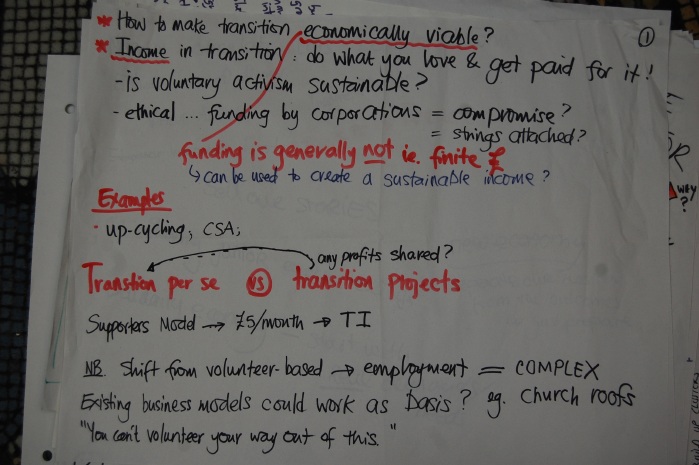 * How to make transition economically viable?
①
* Income in transition: do what you love & get paid for it!
- is voluntary activism sustainable?
- ethical ... funding by corporations = compromise?
= strings attached?
funding is generally not ie. finite £
↳ can be used to create a sustainable income?
Examples
· up-cycling, CSA,
any profits shared?
Transtion per se VS transition projects
Supporters Model → £5/month → TI
NB. Shift from volunteer-based → employment = COMPLEX
Existing business models could work as basis? eg. Church roofs
"You can't volunteer your way out of this."
WHY
?